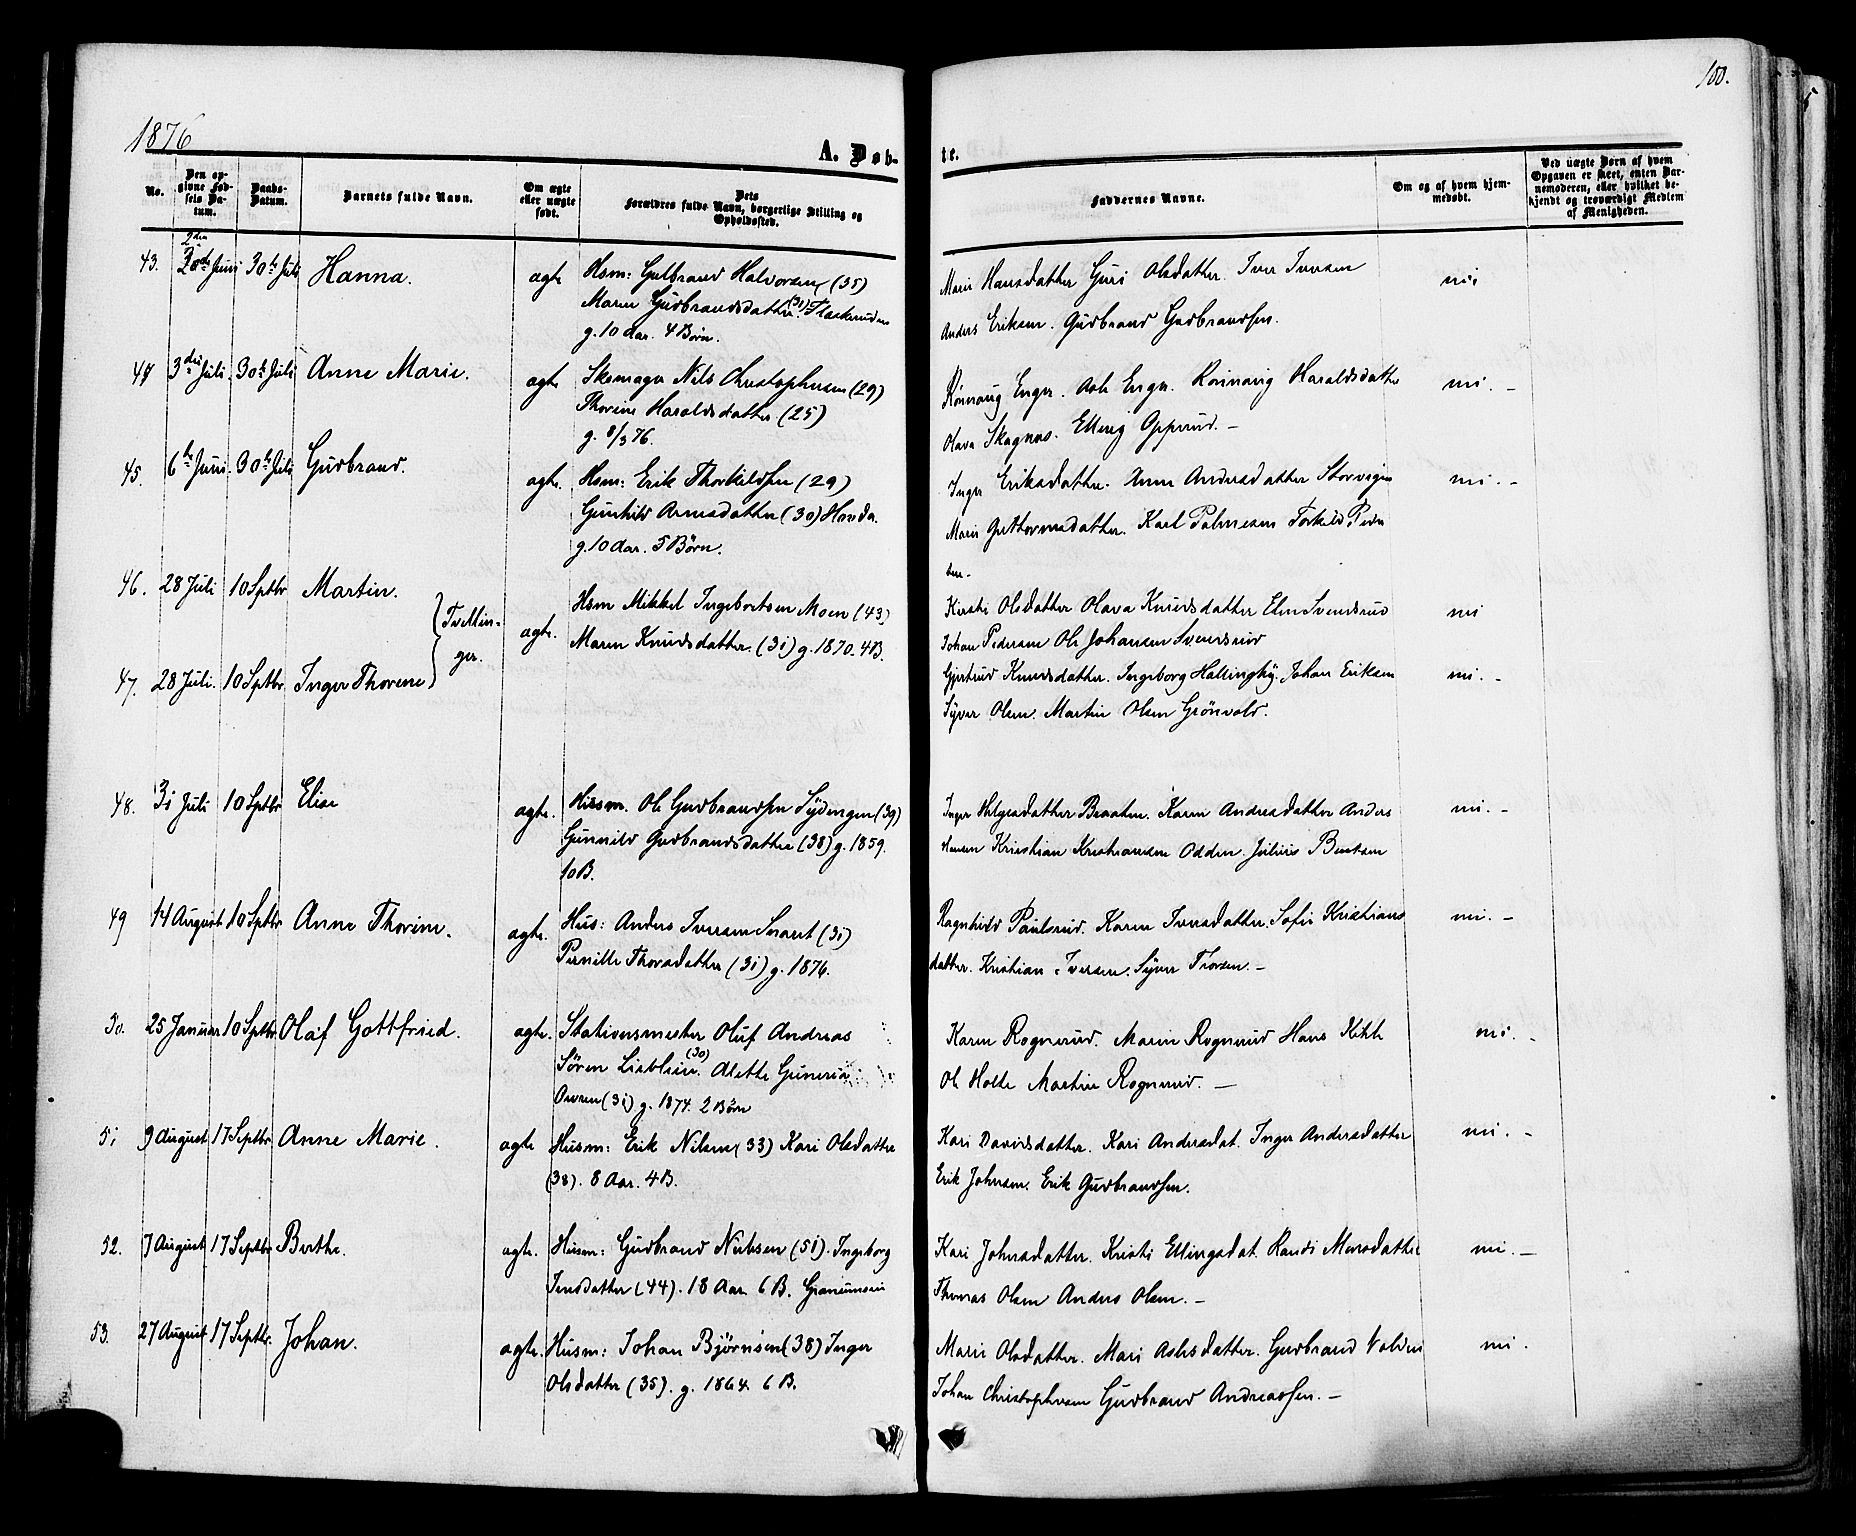 100.
1876
A. Døb-
te.
No.
Den opgivne Fødsels Datum.
Daabs-Datum.
Barnets fulde Navn.
Om ægte eller uægte født.
Forældres fulde Navn, borgerlige Stilling og Opholdssted.
Faddernes Navne.
Om og af hvem hjemmedøbt.
Ved uægte Børn af hvem Opgaven er skeet, enten Barnemoderen, eller hvilket bekjendt og troværdigt Medlem af Menigheden.
43. Juni 30te Juli Hanna. agte Hsm: Gulbrand Halvorsen (35)
Maren Gudbrandsdatter (31)
g. 10 Aar. 4 Børn.
Marie Hansdatter Guri Olsdatter. Iver Iversen
Anders Eriksen. Gudbrand Gudbrandsen.
ni
44 3die Juli. 30te Juli Anne Marie. agte Skomager Nils Christophersen (29)
Thorine Haraldsdatter (25)
g. 8/3 76.
Rönnaug Enger. Enger. Rönnaug Haraldsdatter
Olava Skagnæs. Elling Opperud. —
ni. —
45. 6te Juni. 30te Juli Gudbrand. agte. Hsm: Erik Thorkildsen (29)
Gunhild Arnesdatter (30)
g. 10 Aar. 5 Børn.
Inger Eriksdatter. Anne Andersdatter Storvigen
Marie Guthormsdatter. Karl Palmesen Torkild Peder
sen.
ni. —
46. 28 Juli 10 Septbr Martin.
Tvillin-
ger.
agte. Hsm Mikkel Ingebretsen Moen (43)
Maren Knudsdatter. (31) g. 1870. 4B.
Kirsti Olsdatter Olava Knudsdatter Elen Svendsrud
Johan Pedersen Ole Johansen Svendsrud
ni
47. 28 Juli. 10 Septbr. Inger Thorine
Gjertrud Knudsdatter. Ingeborg Hallingby. Johan Eriksen
Syver Olsen. Martin Olsen Grönvold.
ni. —
48. 31 Juli 10 Septbr Elise agte. Husm. Ole Gudbrandsen (39)
Gunnild Gudbrandsdatter (38) g. 1859.
10B.
Inger Helgesdatter Braaten. Karen Andreasdatter Anders
Hansen Kristian Kristiansen Odden. Julius Bentsen
ni. —
49 14 August 10 Septbr Anne Thorine. agte. Hus: Anders Iversen (31)
Pernille Thorsdatter (31) g. 1876.
Ragnhild Paulsrud. Karen Iversdatter. Sofie Kristians
datter. Kristian Iversen. Syver Thorsen. —
ni. —
50. 25 Januar 10 Septbr Olaf Gottfried. agte. Stationsmester Oluf Andreas
Sören Lieblein. (30) Alette Guneria
(31) g. 1874. 2 Börn
Karen Rognerud. Maren Rognerud Hans
Ole Holte Martin Rognerud. —
ni. —
51 9 August 17 Septbr Anne Marie. agte Husm: Erik Nilsen (33) Kari Olsdatter
(38). 8 Aar. 4B.
Kari Davidsdatter. Kari Andersdat. Inger Andersdatter
Erik Johnsen. Erik Gudbrandsen.
ni. —
52. 7 August 17 Septbr Berthe. agte. Husm: Gudbrand Nubsen (51). Ingeborg
Jensdatter (44). 18 Aar. 6B.
Kari Johnsdatter. Kirsti Ellingsdat. Randi Monsdatter
Thomas Olsen Anders Olsen. —
ni. —
53. 27 August 17 Septbr. Johan. agte. Husm: Johan Björnsen (38) Inger
Olsdatter (35). g. 1864. 6B.
Marie Olsdatter. Mari Aslesdatter. Gudbrand Volden
Johan Christophersen Gudbrand Andreassen. —
ni.